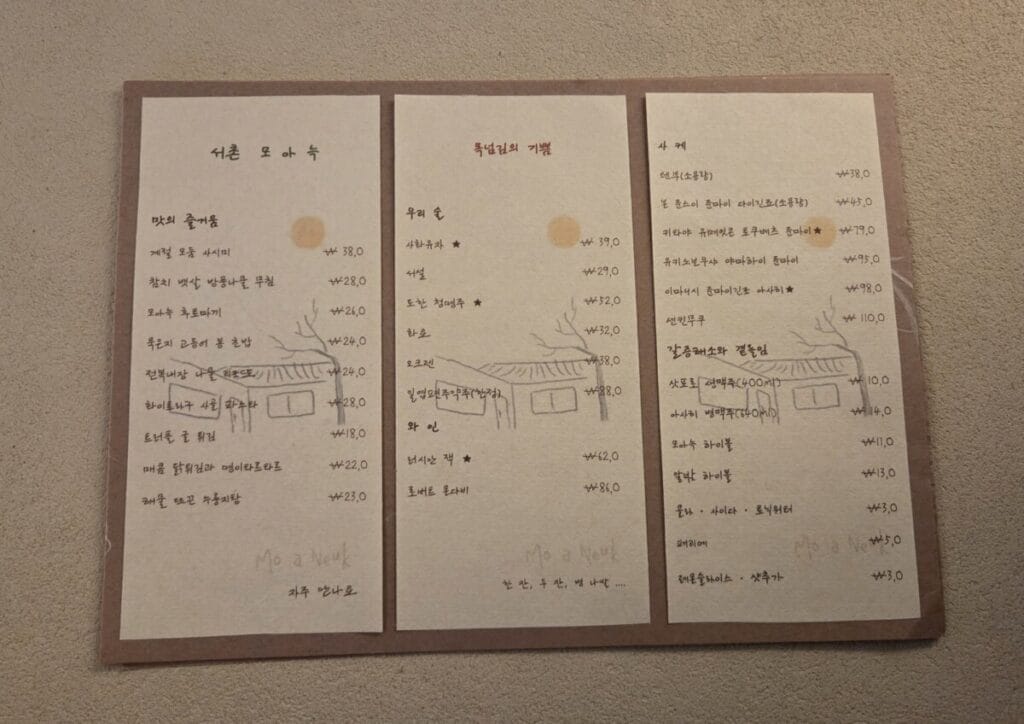 서촌 모아늑
맛의 즐거움
계절 모둠 사시미 ₩38,0
참치 뱃살 방풍나물 무침 ₩28,0
모아늑 후토마끼 ₩26,0
묵은지 고등어 봉 초밥 ₩24,0
전복내장 나물 리조또 ₩24,0
화이트라구 사골 파스타 ₩28,0
트러플 굴 튀김 ₩18,0
매콤 닭튀김과 명이타르타르 ₩22,0
해물 뜨끈 누룽지탕 ₩23,0
Mo a Neuk
자주 만나요
목넘김의 기쁨
우리 술
사화유자 ★ ₩39,0
서설 ₩29,0
도한 청명주 ★ ₩52,0
화요 ₩32,0
오크젠 ₩38,0
₩88,0
와인
터시안 잭 ★ ₩62,0
로버트 몬다비 ₩86,0
Mo a Neuk
한 잔, 두 잔, 병 나발 ....
사케
텐부(소용량) ₩38,0
본 쥰스이 쥰마이 다이긴죠(소용량) ₩45,0
키타야 쥰마이★ ₩79,0
유키노보우샤 야마하이 쥰마이 ₩95,0
이마니시 쥰마이긴죠 아사히★ ₩98,0
센킨무쿠 ₩110,0
갈증해소와 곁들임
삿포로 생맥주(400ml) ₩10,0
아사히 병맥주(640ml) ₩14,0
모아늑 하이볼 ₩11,0
얼박 하이볼 ₩13,0
콜라 · 사이다 · 토닉워터 ₩3,0
페리에 ₩5,0
Mo a Neuk
레몬슬라이스 · 샷추가 ₩3,0